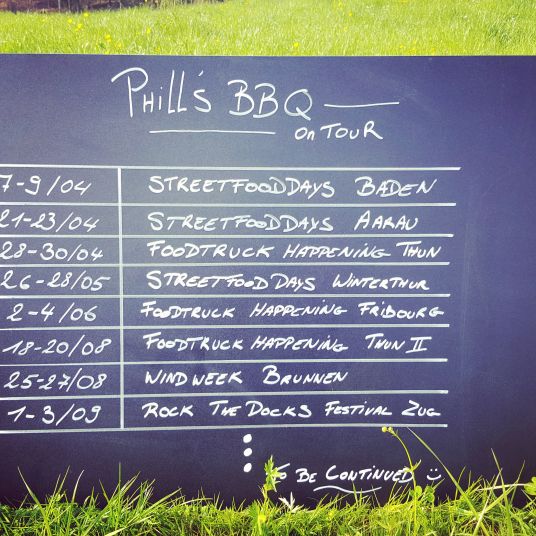 Phill's BBQ
on Tour
7-9/04 StreetfoodDays Baden
21-23/04 StreetfoodDays Aarau
28-30/04 Foodtruck Happening Thun
26-28/05 StreetfoodDays Winterthur
2-4/06 Foodtruck Happening Fribourg
18-20/08 Foodtruck Happening Thun II
25-27/08 Windweek Brunnen
1-3/09 Rock The Docks Festival Zug
to be continued :)